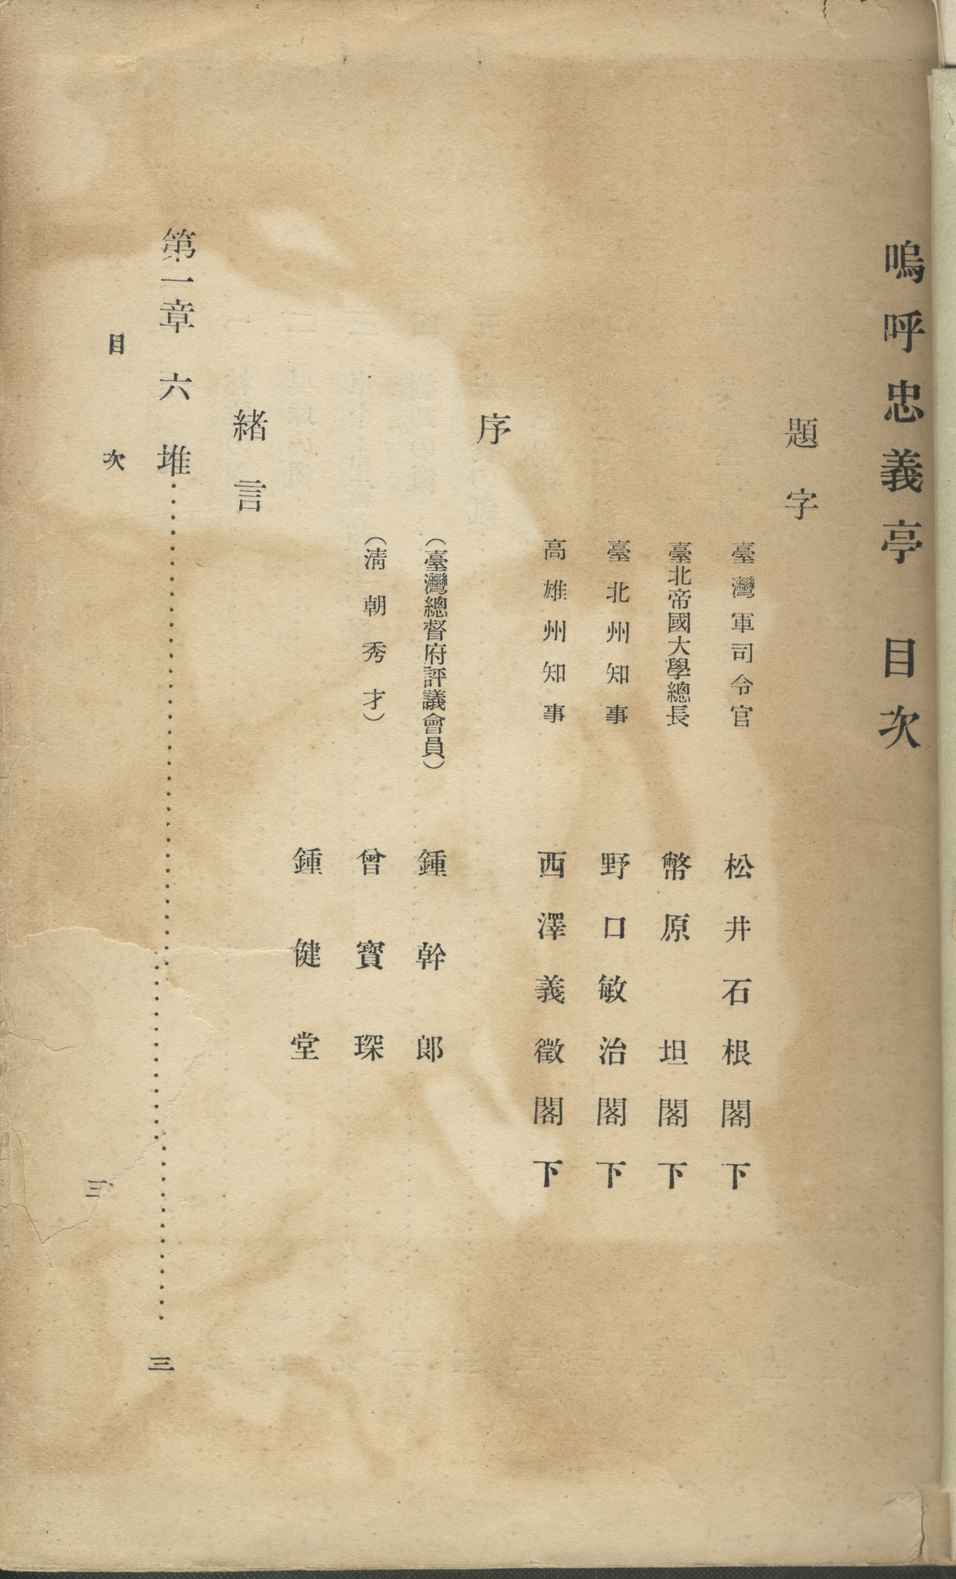 嗚呼忠義亭　目次
題字
臺灣軍司令官　松井石根閣下
臺北帝國大學總長　幣原　坦閣下
臺北州知事　野口敏治閣下
高雄州知事　西澤義徵閣下
序
（臺灣總督府評議會員）　鍾幹郎
（淸朝秀才）　曾寶琛
鍾健堂
緖言
第一章　六堆……三
目次
三